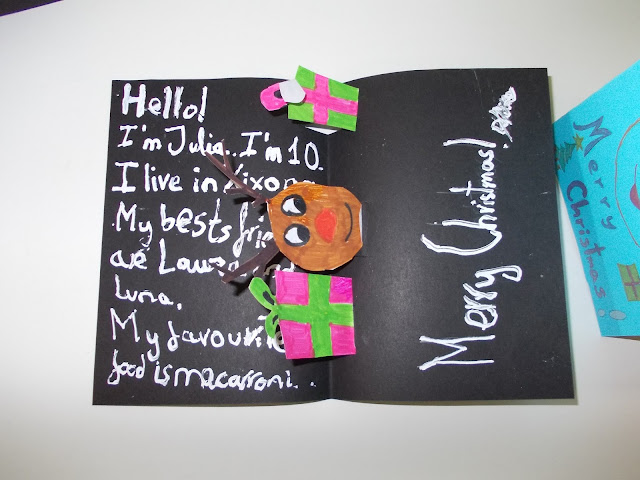 Hello!
I'm Julia.. I'm 10.
I live in Xixona
My bests
are
Luna.
My favourite
food is macarroni...
Merry Christmas!
Merry
Christmas!